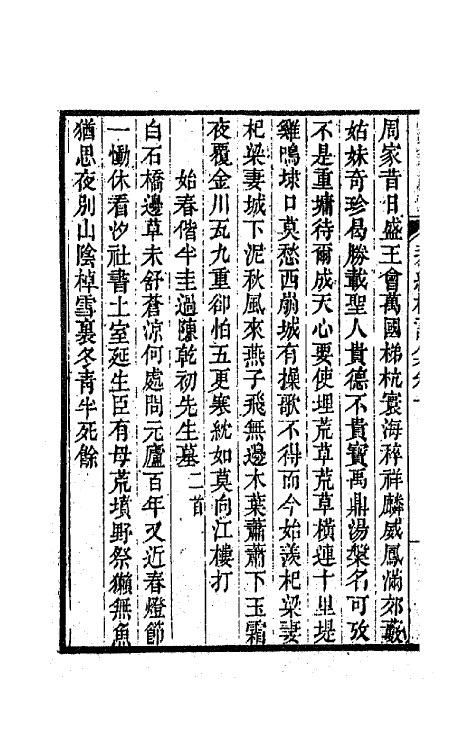 周家昔日盛王會萬國梯杭寰海稡祥麟威鳳滿郊藪
姑妹奇珍曷勝載聖人貴德不貴寶禹鼎湯槃名可攷
不是重墉待爾成天心要使埋荒草荒草橫連十里堤
雞鳴埭口莫愁西崩城有操歌不得而今始羨杞梁妻
杞梁妻城下泥秋風來燕子飛無邊木葉蕭蕭下玉霜
夜覆金川瓦九重卻怕五更寒紞如莫向江樓打
始春偕半圭過陳乾初先生墓二首
白石橋邊草未舒蒼涼何處問元廬百年又近春燈節
一慟休看汐社書土室延生臣有母荒墳野祭獺無魚
猶思夜別山陰棹雪裏冬青半死餘